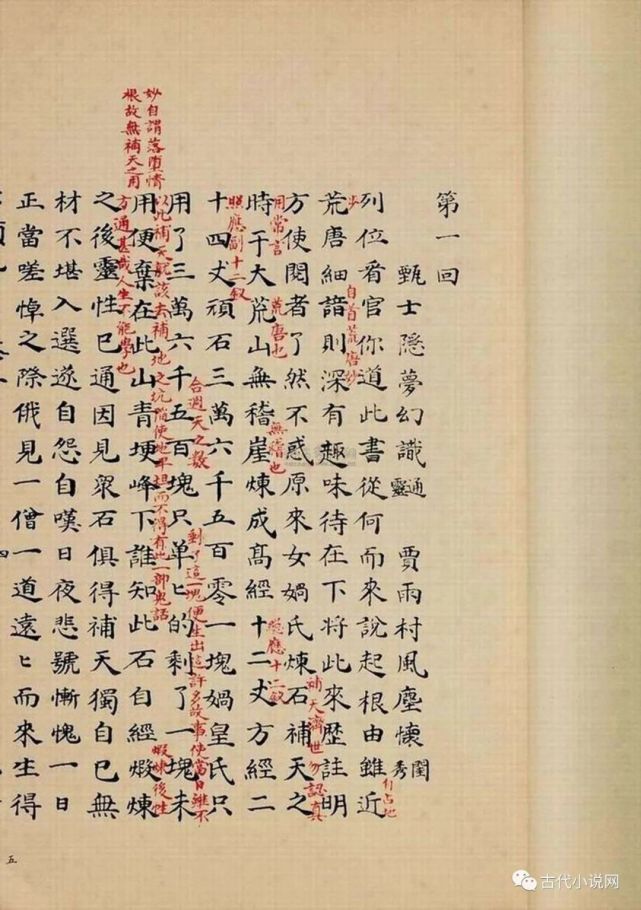 第一回
甄士隱夢幻識通靈 賈雨村風塵懷閨秀
列位看官你道此書從何而來說起根由雖近
自占地
步
自首荒唐妙
荒唐細諳則深有趣味待在下將此來歷註明
方使閱者了然不惑原來女媧氏煉石補天之
補天濟世勿認真
用常言
荒唐也
無稽也
總應十二釵
時于大荒山無稽崖煉成高經十二丈方經二
照應副十二釵
十四丈頑石三萬六千五百零一塊媧皇氏只
合週天之數
剩了這一塊便生出這許多故事使當日雖不
用了三萬六千五百塊只单匕的剩了一塊未
以此補天就該去補地之坑陷使地平坦而不得有此一部鬼話
用便棄在此山青埂峰下誰知此石自經煅煉
妙自謂落墮情
根故無補天之用
煅煉後性
方通甚哉人生不能學也
之後靈性已通因見衆石俱得補天獨自己無
材不堪入選遂自怨自嘆日夜悲號慚愧一日
正當嗟悼之際俄見一僧一道遠匕而來生得
五
古代小说网